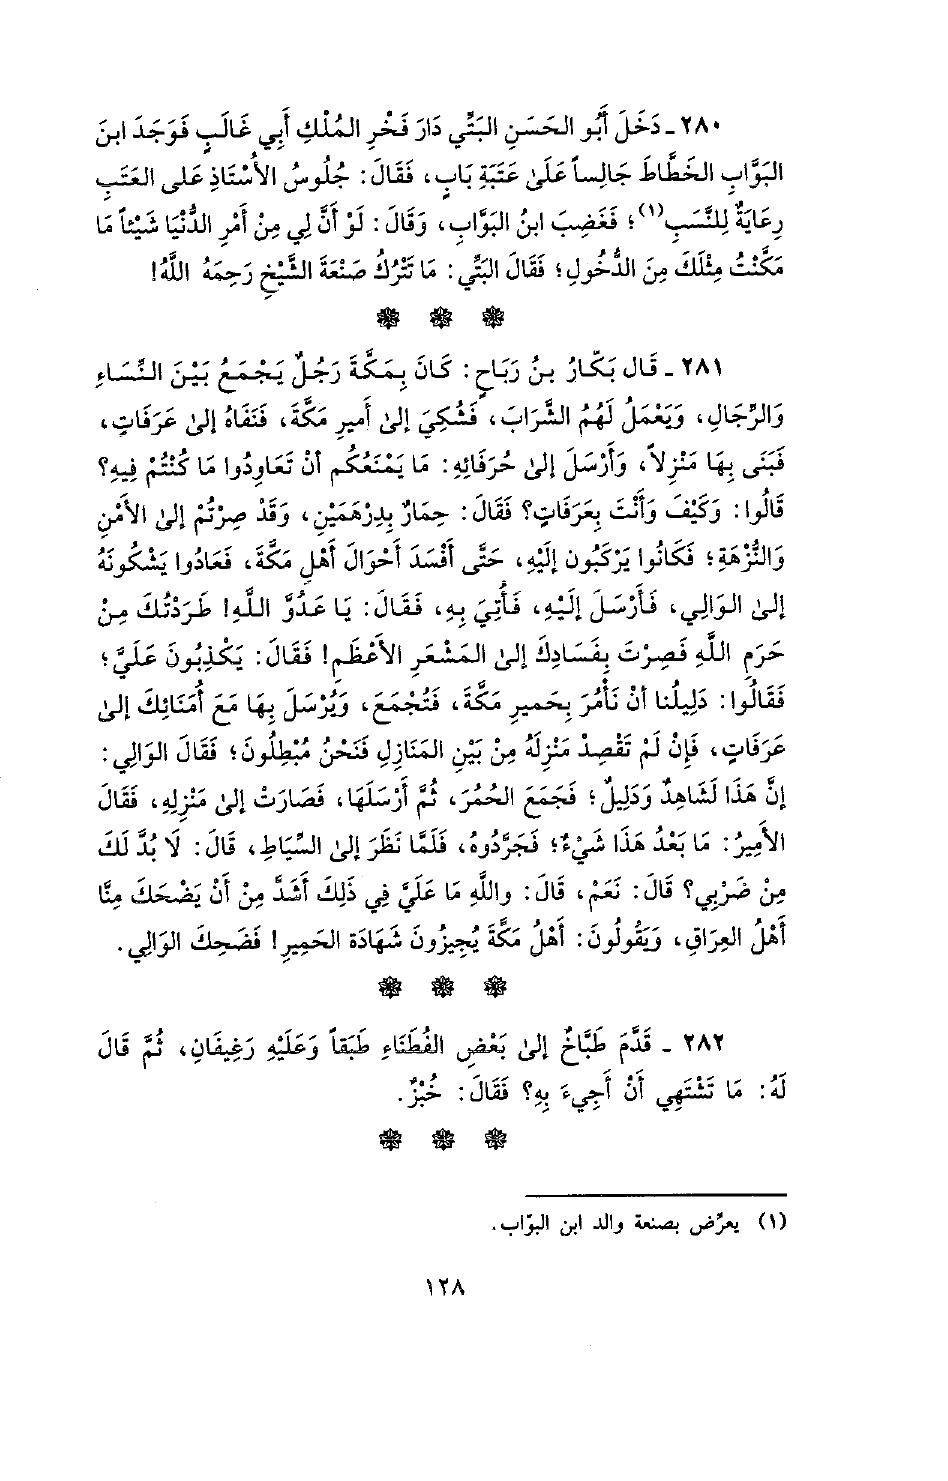 ٢٨٠ـ دَخَلَ أَبُو الحَسَنِ البَتِّي دَارَ فَخْرِ المُلْكِ أَبِي غَالَبٍ فَوَجَدَ ابنَ
البَوَّابِ الخَطَّاطَ جَالِساً عَلَىٰ عَتَبَةِ بَابٍ، فَقَالَ: جُلُوسُ الأُسْتَاذِ عَلى العَتَبِ
رِعَايَةٌ لِلنَّسَبِ(١)؛ فَغَضِبَ ابنُ البَوَّابِ، وَقَالَ: لَوْ أَنَّ لِي مِنْ أَمْرِ الدُّنْيَا شَيْئاً مَا
مَكَّنْتُ مِثْلَكَ مِنَ الدُّخُولِ؛ فَقَالَ البَتِّي: مَا تَتْرُكُ صَنْعَةَ الشَّيْخِ رَحِمَهُ اللَّهُ!
٢٨١ ـ قَال بَكَّارُ بنُ رَبَاحٍ: كَانَ بِمَكَّةَ رَجُلٌ يَجْمَعُ بَيْنَ النِّسَاءِ
وَالرِّجَالِ، وَيَعْمَلُ لَهُمُ الشَّرَابَ، فَشُكِيَ إِلىٰ أَميرِ مَكَّةَ، فَنَفَاهُ إِلىٰ عَرَفَاتٍ،
فَبَنَى بِهَا مَنْزِلاً، وَأَرْسَلَ إِلىٰ حُرَفَائِهِ: مَا يَمْنَعُكُم أَنْ تَعَاوِدُوا مَا كُنْتُمْ فِيهِ؟
قَالُوا: وَكَيْفَ وَأَنْتَ بِعَرَفَاتٍ؟ فَقَالَ: حِمَارٌ بِدِرْهَمَيْنِ، وَقَدْ صِرْتُمْ إِلىٰ الأَمْنِ
وَالنُّزْهَةِ؛ فَكَانُوا يَرْكَبُون إِلَيْهِ، حَتَّى أَفْسَدَ أَحْوَالَ أَهْلِ مَكَّةَ، فَعَادُوا يَشْكُونَهُ
إِلىٰ الوَالِي، فَأَرْسَلَ إِلَيْهِ، فَأُتِيَ بِهِ، فَقَالَ: يَا عَدُوَّ اللَّهِ! طَرَدْتُكَ مِنْ
حَرَمِ اللَّهِ فَصِرْتَ بِفَسَادِكَ إِلىٰ المَشْعَرِ الأَعْظَمِ! فَقَالَ: يَكْذِبُونَ عَلَيَّ؛
فَقَالُوا: دَلِيلُنا أَنْ تَأْمُرَ بِحَميرِ مَكَّةَ، فَتُجْمَعَ، وَيُرْسَلَ بِهَا مَعَ أُمَنَائِكَ إِلىٰ
عَرَفَاتٍ، فَإِنْ لَمْ تَقْصِدْ مَنْزِلَهُ مِنْ بَيْنِ المَنَازِلِ فَنَحْنُ مُبْطِلُونَ؛ فَقَالَ الوَالِي:
إِنَّ هَذَا لَشَاهِدٌ وَدَلِيلٌ؛ فَجَمَعَ الحُمُرَ، ثُمَّ أَرْسَلَهَا، فَصَارَتْ إِلىٰ مَنْزِلِهِ، فَقَالَ
الأَمِيرُ: مَا بَعْدُ هَذَا شَيْءٌ؛ فَجَرَّدُوهُ، فَلَمَّا نَظَرَ إِلىٰ السِّيَاطِ، قَالَ: لَا بُدَّ لَكَ
مِنْ ضَرْبِي؟ قَالَ: نَعَمْ، قَالَ: واللَّهِ مَا عَلَيَّ فِي ذَلِكَ أَشَدَّ مِنْ أَنْ يَضْحَكَ مِنَّا
أَهْلُ العِرَاقِ، وَيَقُولُونَ: أَهْلُ مَكَّةَ يُجِيزُونَ شَهَادَة الحَميرِ! فَضَحِكَ الوَالِي.
٢٨٢ ـ قَدَّمَ طَبَّاخٌ إِلىٰ بَعْضِ الفُطَنَاءِ طَبَقاً وَعَلَيْهِ رَغِيفَانِ، ثُمَّ قَالَ
لَهُ: مَا تَشْتَهِي أَنْ أَجِيءَ بِهِ؟ فَقَالَ: خُبْزٌ.
(١) يعرِّض بصنعة والد ابن البوّاب.
١٢٨